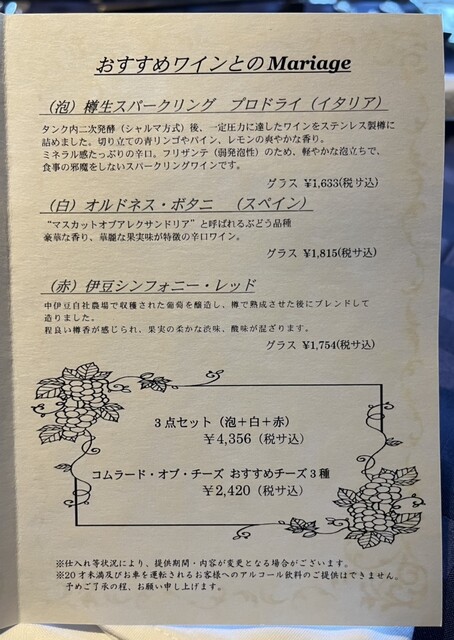 おすすめワインとの Mariage
（泡）樽生スパークリング　プロドライ（イタリア）
タンク内二次発酵（シャルマ方式）後、一定圧力に達したワインをステンレス製樽に
詰めました。切り立ての青リンゴやパイン、レモンの爽やかな香り。
ミネラル感たっぷりの辛口。フリザンテ（弱発泡性）のため、軽やかな泡立ちで、
食事の邪魔をしないスパークリングワインです。
グラス ￥1,633(税サ込)
（白）オルドネス・ボタニ　（スペイン）
“マスカットオブアレクサンドリア”と呼ばれるぶどう品種
豪華な香り、華麗な果実味が特徴の辛口ワイン。
グラス ￥1,815(税サ込)
（赤）伊豆シンフォニー・レッド
中伊豆自社農場で収穫された葡萄を醸造し、樽で熟成させた後にブレンドして
造りました。
程良い樽香が感じられ、果実の柔かな渋味、酸味が混ざります。
グラス ￥1,754(税サ込)
3点セット（泡＋白＋赤）
￥4,356（税サ込）
コムラード・オブ・チーズ おすすめチーズ3種
￥2,420（税サ込）
※仕入れ等状況により、提供期間・内容が変更となる場合がございます。
※20才未満及びお車を運転されるお客様へのアルコール飲料のご提供はできません。
予めご了承の程、お願い申し上げます。